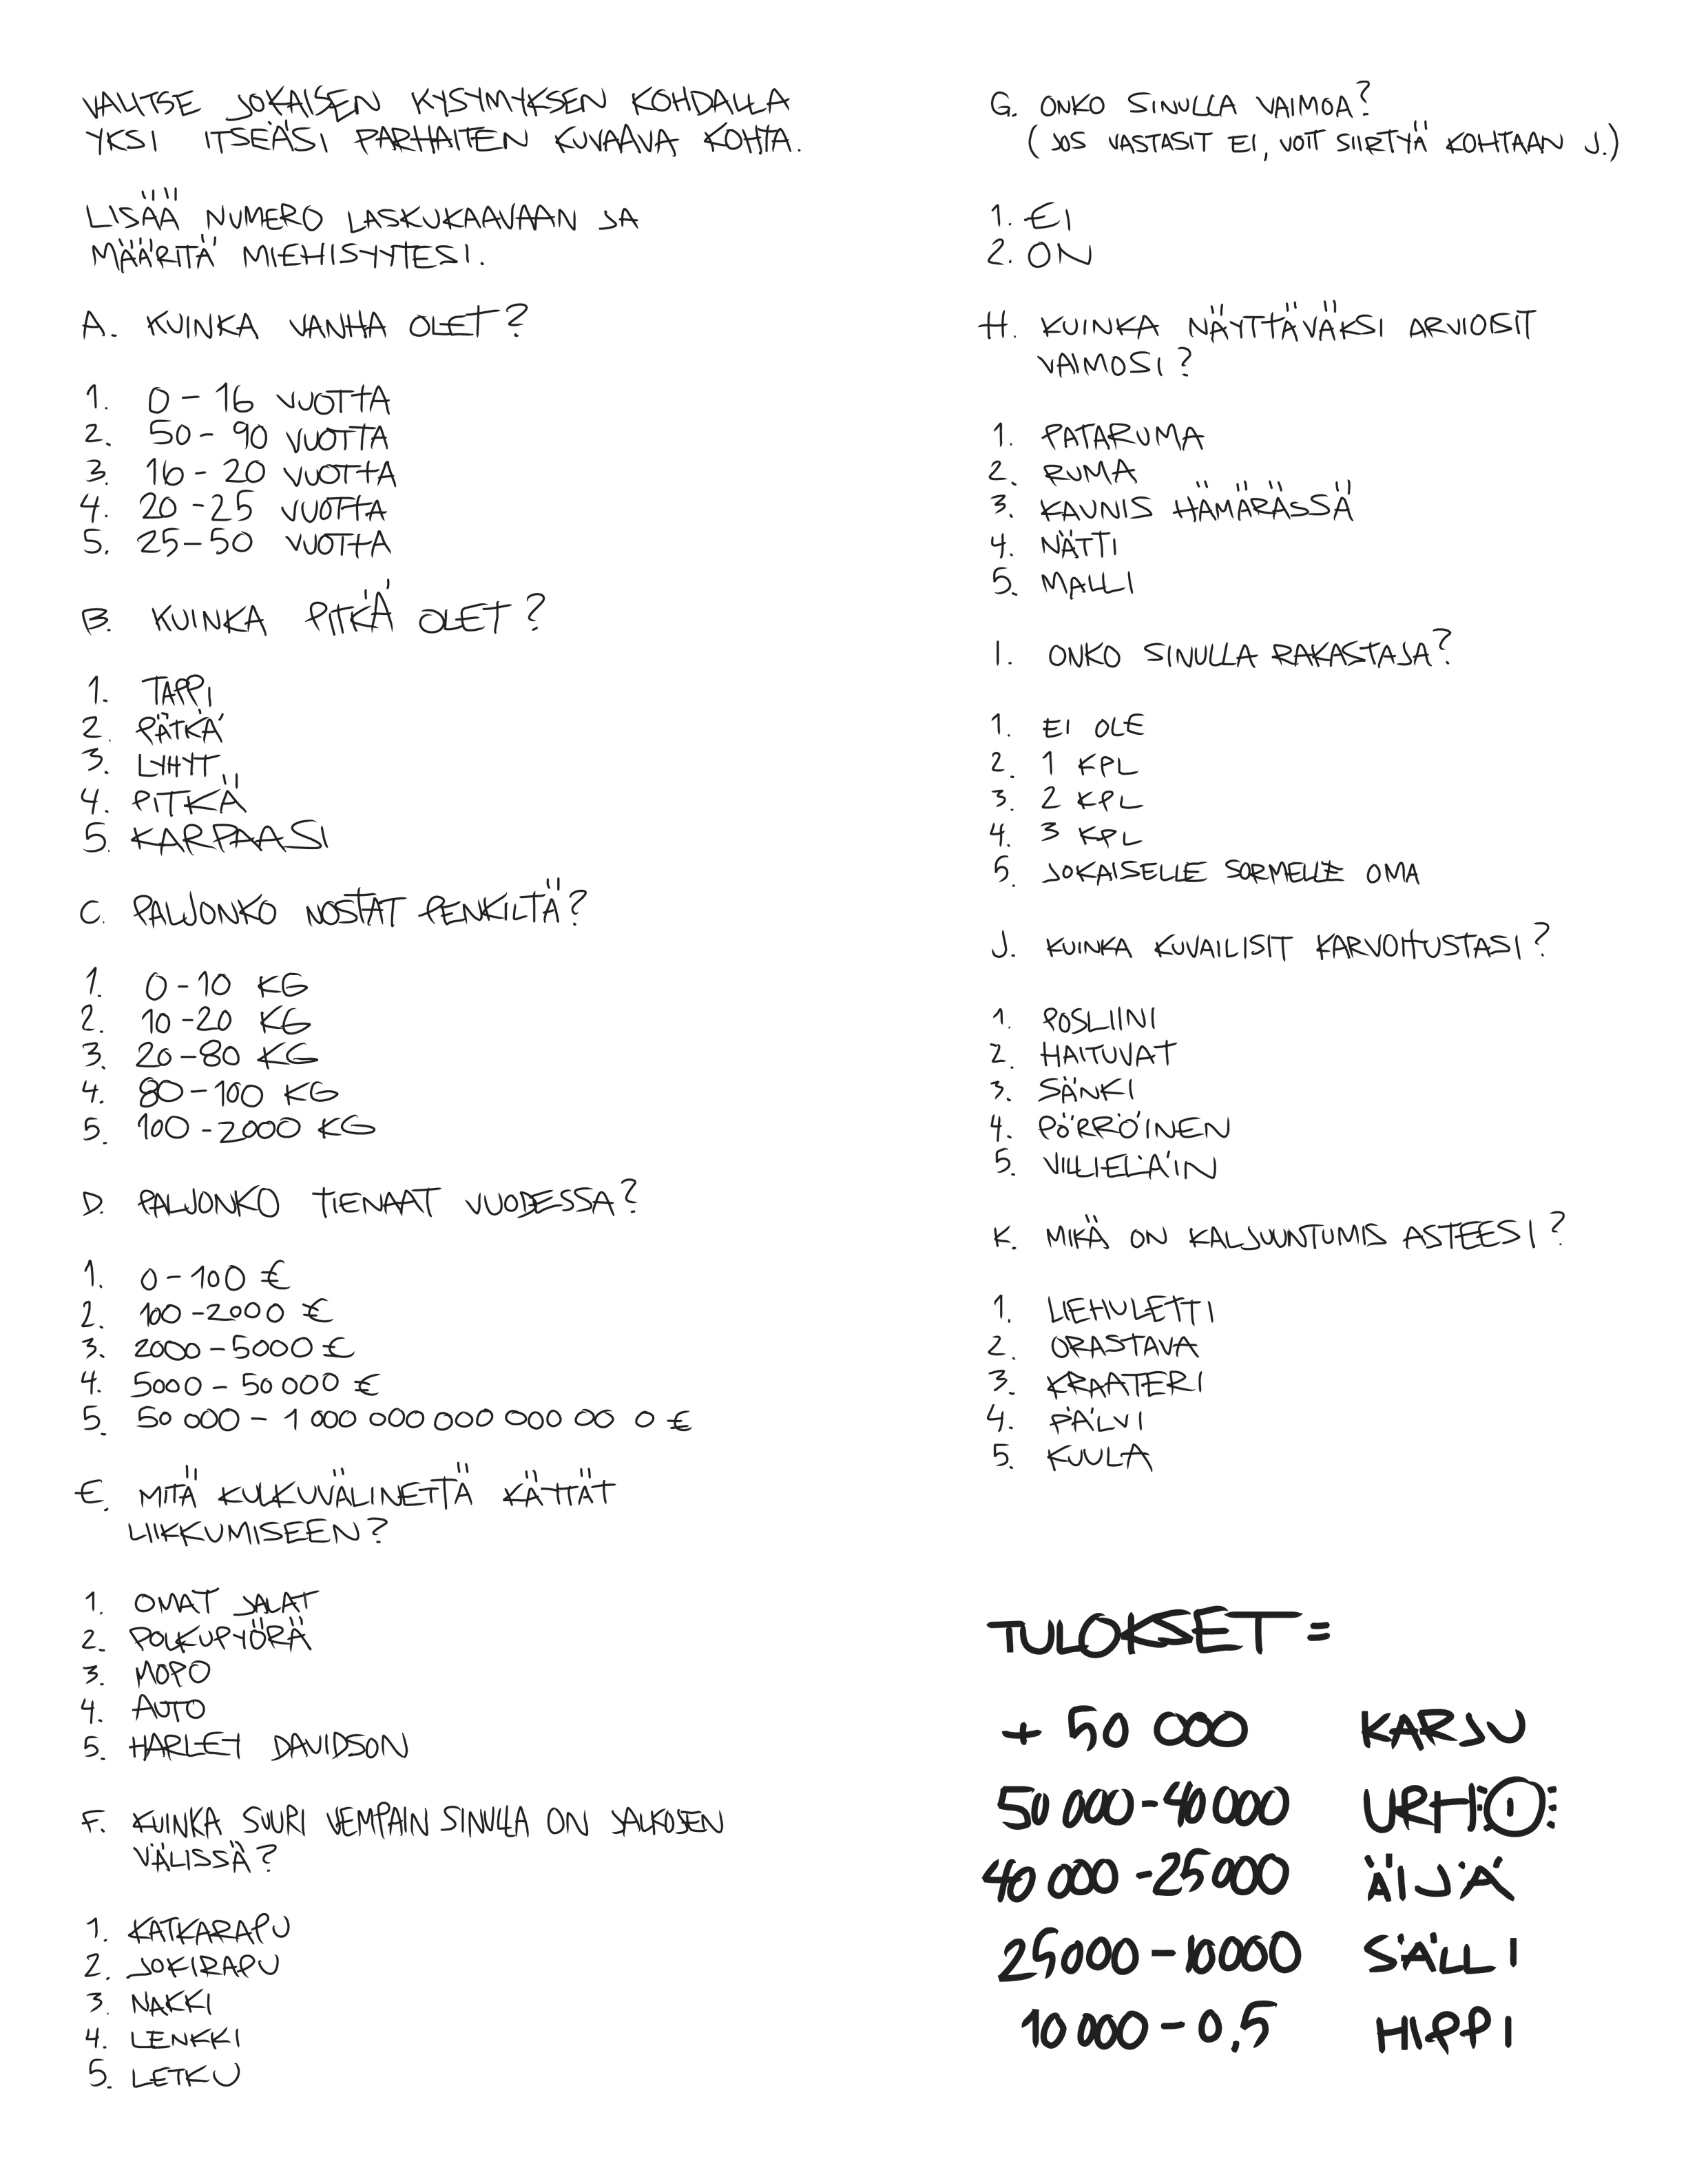 VALITSE JOKAISEN KYSYMYKSEN KOHDALLA
YKSI ITSEÄSI PARHAITEN KUVAAVA KOHTA.
LISÄÄ NUMERO LASKUKAAVAAN JA
MÄÄRITÄ MIEHISYYTESI.
A. KUINKA VANHA OLET?
1. 0 - 16 VUOTTA
2. 50 - 90 VUOTTA
3. 16 - 20 VUOTTA
4. 20 - 25 VUOTTA
5. 25 - 50 VUOTTA
B. KUINKA PITKÄ OLET?
1. TAPPI
2. PÄTKÄ
3. LYHYT
4. PITKÄ
5. KARPAASI
C. PALJONKO NOSTAT PENKILTÄ?
1. 0 - 10 KG
2. 10 - 20 KG
3. 20 - 80 KG
4. 80 - 100 KG
5. 100 - 2000 KG
D. PALJONKO TIENAAT VUODESSA?
1. 0 - 100 €
2. 100 - 2000 €
3. 2000 - 5000 €
4. 5000 - 50 000 €
5. 50 000 - 1 000 000 000 000 00 0 €
E. MITÄ KULKUVÄLINETTÄ KÄTTÄT
LIIKKUMISEEN?
1. OMAT JALAT
2. POLKUPYÖRÄ
3. MOPO
4. AUTO
5. HARLEY DAVIDSON
F. KUINKA SUURI VEMPAIN SINULLA ON JALKOJEN
VÄLISSÄ?
1. KATKARAPU
2. JOKIRAPU
3. NAKKI
4. LENKKI
5. LETKU
G. ONKO SINULLA VAIMOA?
(JOS VASTASIT EI, VOIT SIIRTYÄ KOHTAAN J.)
1. EI
2. ON
H. KUINKA NÄYTTÄVÄKSI ARVIOISIT
VAIMOSI?
1. PATARUMA
2. RUMA
3. KAUNIS HÄMÄRÄSSÄ
4. NÄTTI
5. MALLI
I. ONKO SINULLA RAKASTAJA?
1. EI OLE
2. 1 KPL
3. 2 KPL
4. 3 KPL
5. JOKAISELLE SORMELLE OMA
J. KUINKA KUVAILISIT KARVOITUSTASI?
1. POSLIINI
2. HAITUVAT
3. SÄNKI
4. PÖRRÖINEN
5. VILLIELÄIN
K. MIKÄ ON KALJUUNTUMIS ASTEESI?
1. LIEHULETTI
2. ORASTAVA
3. KRAATERI
4. PÄLVI
5. KUULA
TULOKSET =
+ 50 000 KARJU
50 000 - 40 000 URHO
40 000 - 25 000 ÄIJÄ
25 000 - 10 000 SÄLLI
10 000 - 0,5 HIPPI